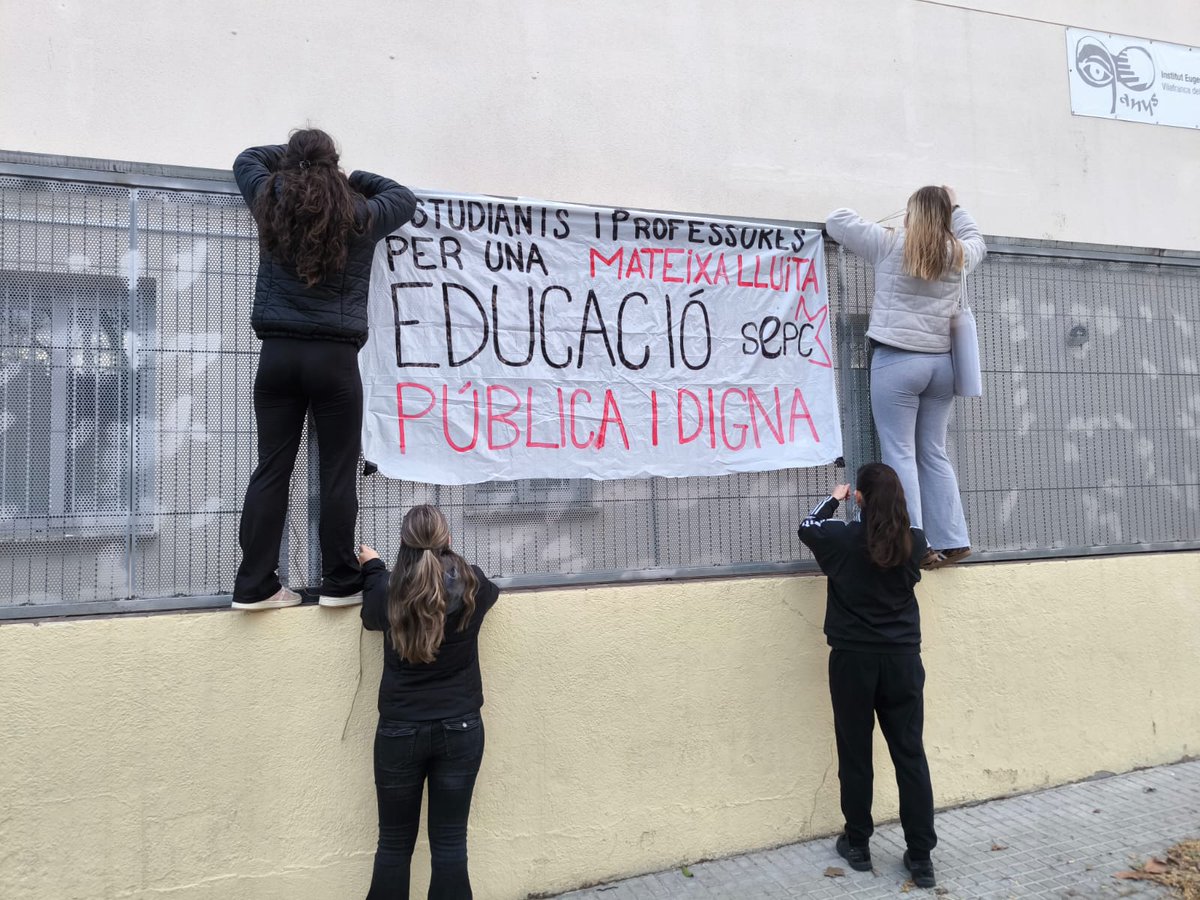 ESTUDIANTS I PROFESSORES
PER UNA MATEIXA LLUITA
EDUCACIÓ sepc
PÚBLICA I DIGNA
90 anys
Institut Euge
Vilafranca del